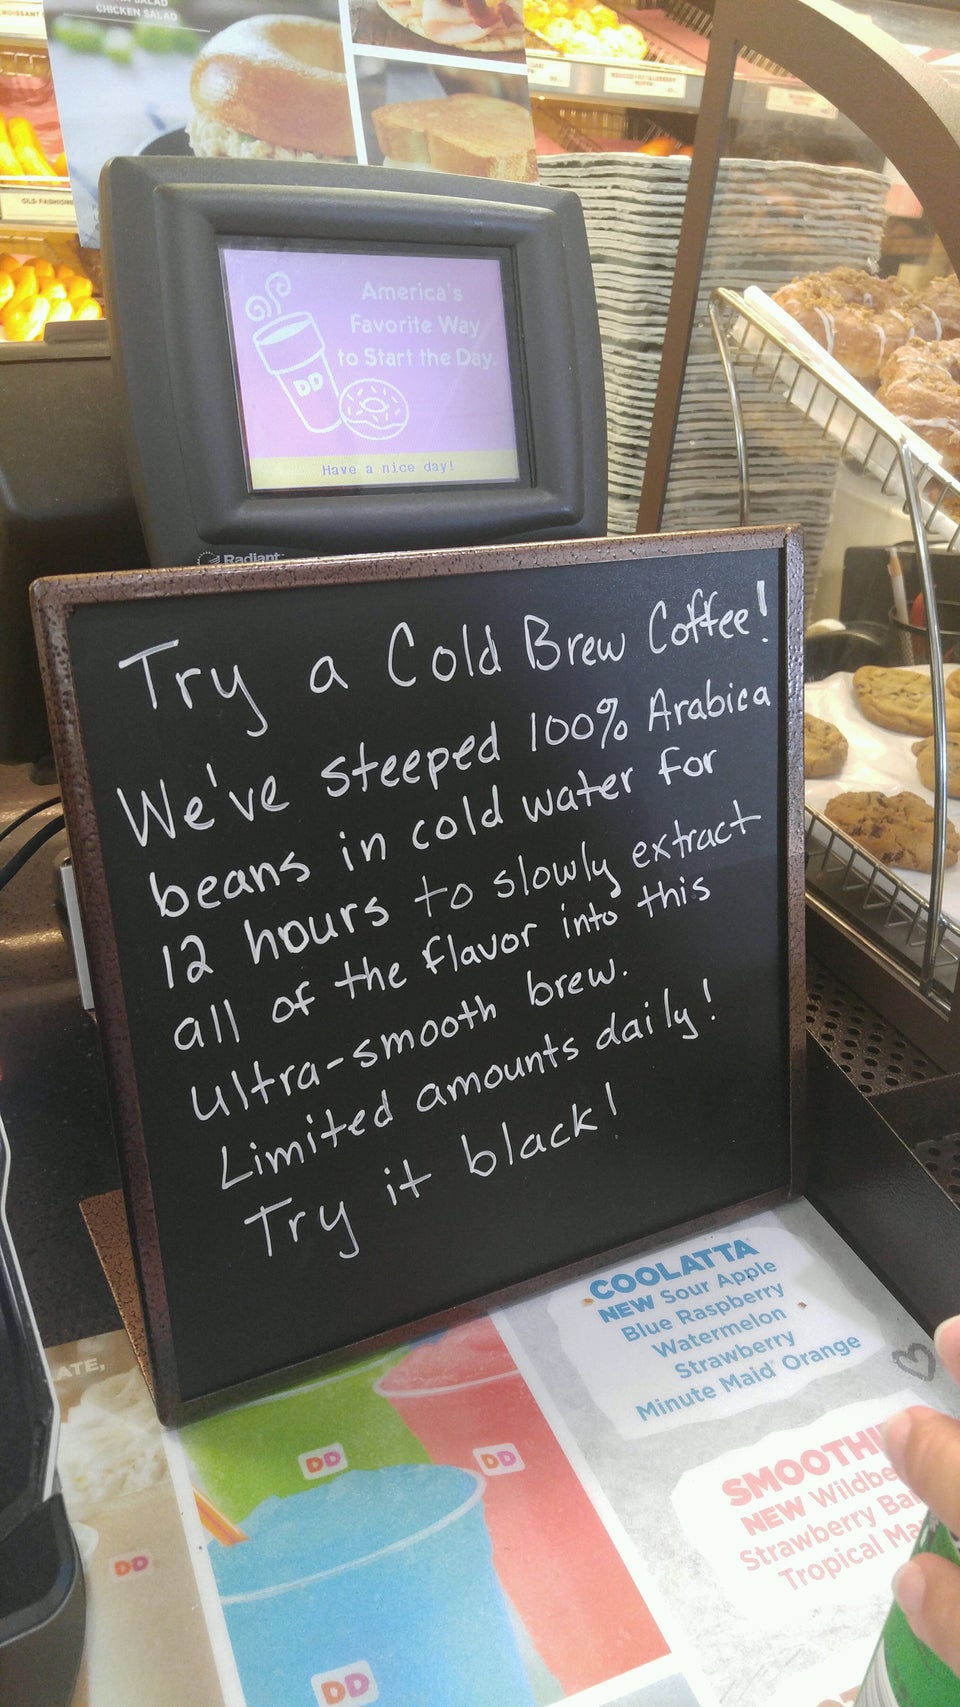 CHICKEN SALAD
America's
Favorite Way
to Start the Day.
DD
Have a nice day!
Radiant
Try a Cold Brew Coffee!
We've steeped 100% Arabica
beans in cold water for
12 hours to slowly extract
all of the flavor into this
ultra-smooth brew.
Limited amounts daily!
Try it black!
COOLATTA
NEW Sour Apple
Blue Raspberry
Watermelon
Strawberry
Minute Maid Orange
SMOOTHI
NEW Wildbe
Strawberry Ba
Tropical Ma
ATE,
DD
DD
DD
DD